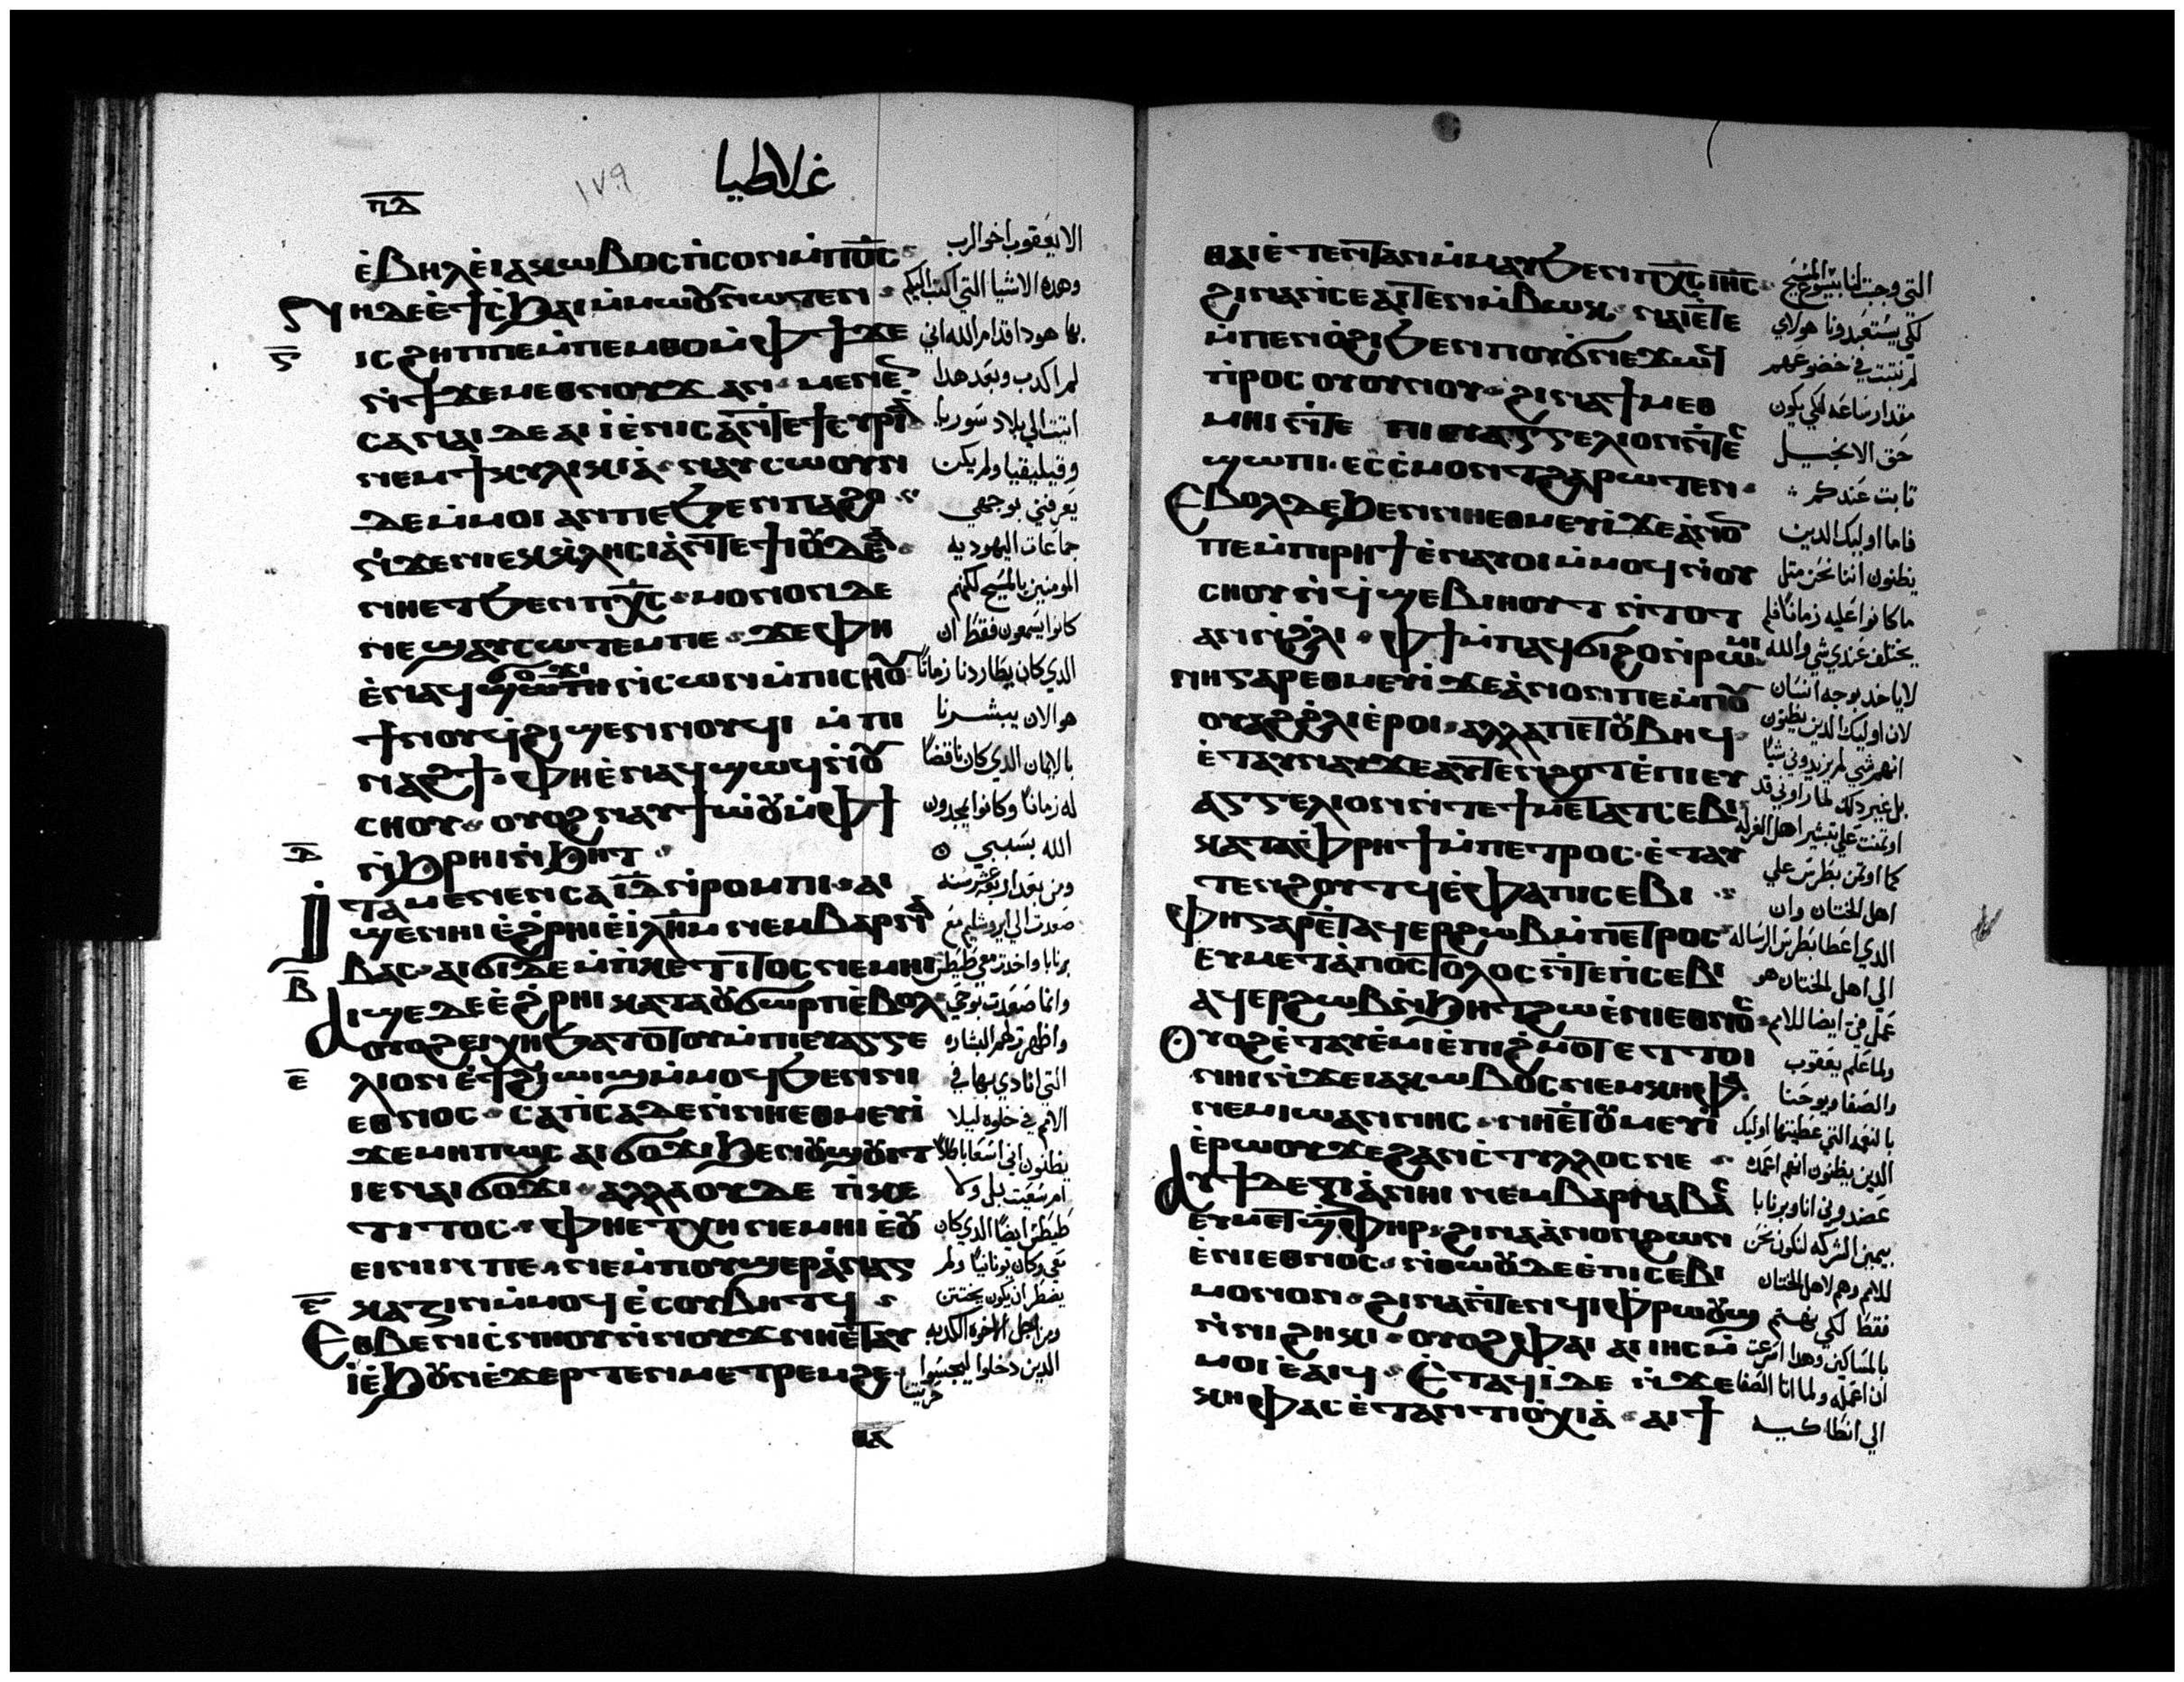 غلاطيا
١٧٩
ⲡ̅ⲇ̅
ⲉ̀ⲃⲏⲗ ⲉ̀ⲓⲁⲕⲱⲃⲟⲥ ⲡ̀ⲥⲟⲛ ⲙ̀ⲡⲟ̅ⲥ̅
ⲛⲏ ⲇⲉ ⲉ̀ϯⲥ̀ϧⲁⲓ ⲙ̀ⲙⲱⲟⲩ ⲛⲱⲧⲉⲛ
ⲓⲥϩⲏⲡⲡⲉ ⲙ̀ⲡⲉⲙⲑⲟ ⲙ̀ⲫϯ ϫⲉ
ⲛ̀ϯϫⲉⲙⲉⲑⲛⲟⲩϫ ⲁⲛ ⲙⲉⲛⲉⲛ
ⲥⲁ ⲛⲁⲓ ⲇⲉ ⲁⲓⲓ̀ ⲉ̀ⲛⲓⲥⲁ ⲛ̀ⲧⲉ ϯⲥⲩⲣⲓⲁ̀
ⲛⲉⲙ ϯⲕⲩⲗⲓⲕⲓⲁ̀ ⲛⲁⲩⲥⲱⲟⲩⲛ
ⲇⲉ ⲙ̀ⲙⲟⲓ ⲁⲛ ⲡⲉ ϧⲉⲛ ⲡⲁϩⲟ
ⲛ̀ϫⲉ ⲛⲓⲉⲕⲕⲗⲏⲥⲓⲁ̀ ⲛ̀ⲧⲉ ϯⲓⲟⲩⲇⲉⲁ̀
ⲛⲏⲉⲧϧⲉⲛ ⲡⲭ̅ⲥ̅ ⲙⲟⲛⲟⲛ ⲇⲉ
ⲛⲉϣⲁⲩⲥⲱⲧⲉⲙ ⲡⲉ ϫⲉ ⲫⲏ
ⲉ̀ⲛⲁϥϭⲟϫⲓ ⲛ̀ⲥⲱⲛ ⲙ̀ⲡⲓⲥⲏⲟⲩ
ϯⲛⲟⲩ ϥϩⲓϣⲉⲛⲛⲟⲩϥⲓ ⲙ̀ⲡⲓ
ⲛⲁϩϯ ⲫⲏ ⲉ̀ⲛⲁϥϣⲱϥ ⲛ̀ⲟⲩ
ⲥⲏⲟⲩ ⲟⲩⲟϩ ⲛⲁⲩϯⲱ̀ⲟⲩ ⲙ̀ⲫϯ
ⲛ̀ϧⲣⲏⲓ ⲛ̀ϧⲏⲧ
ⲓⲧⲁ ⲙⲉⲛⲉⲛⲥⲁ ⲓ̅ⲇ̅ ⲛ̀ⲣⲟⲙⲡⲓ ⲁⲓ
ϣⲉⲛⲏⲓ ⲉ̀ϩⲣⲏⲓ ⲉ̀ⲓ̅ⲗ̅ⲏ̅ⲙ̅ ⲛⲉⲙ ⲃⲁⲣⲛⲁ
ⲃⲁⲥ ⲁⲓϭⲓ ⲇⲉ ⲙ̀ⲡⲕⲉⲧⲓⲧⲟⲥ ⲛⲉⲙⲏⲓ
ⲁⲓϣⲉ ⲇⲉ ⲉ̀ϩⲣⲏⲓ ⲕⲁⲧⲁ ⲟⲩϭⲱⲣⲡ ⲉ̀ⲃⲟⲗ
ⲟⲩⲟϩ ⲉⲓⲭⲏ ϧⲁⲧⲟⲧⲟⲩ ⲙ̀ⲡⲓⲉⲩⲁⲅⲅⲉ
ⲗⲓⲟⲛ ⲉ̀ϯϩⲓⲱⲓϣ ⲙ̀ⲙⲟϥ ϧⲉⲛ ⲛⲓ
ⲉⲑⲛⲟⲥ ⲥⲁⲡⲥⲁ ⲇⲉ ⲛ̀ⲛⲏⲉⲑⲙⲉⲩⲓ̀
ϫⲉ ⲙⲏⲡⲱⲥ ⲁⲓϭⲟϫⲓ ϧⲉⲛ ⲟⲩϣⲟⲩⲓⲧ
ⲓⲉ ⲛⲁⲓϭⲟϫⲓ ⲁⲗⲗⲁ ⲟⲩⲇⲉ ⲡⲓⲕⲉ
ⲧⲓⲧⲟⲥ ⲫⲏⲉⲧⲭⲏ ⲛⲉⲙⲏⲓ ⲉ̀ⲟⲩ
ⲉⲓⲛⲓⲛ ⲡⲉ ⲛⲉⲙⲡⲟⲩϣⲉⲣⲁ̀ⲛⲁⲅ
ⲕⲁⲍⲓⲛ ⲙ̀ⲙⲟϥ ⲉ̀ⲥⲟⲩⲃⲏⲧϥ
ⲉⲑⲃⲉ ⲛⲓⲥ̀ⲛⲏⲟⲩ ⲛ̀ⲛⲟⲩϫ ⲛⲏⲉ̀ⲧⲁⲩ
ⲓ̀ ⲉ̀ϧⲟⲩⲛ ⲉ̀ϫⲉⲣ ⲧⲉⲛⲙⲉⲧⲣⲉⲙϩⲉ
الا يعقوب اخو الرب
وهذه الاشيا التي اكتب اليكم
بها هوذا قدام الله اني
لم اكدب وبعد هدا
اتيت الي بلاد سوريا
وقيليقيا ولم يكن
يعرفني بوجهي
جماعات اليهوديه
المومنين بالمسيح لكنهم
كانوا يسمعون فقط ان
الدي كان يطاردنا زمانًا
هو الان يبشرنا
بالايمان الدي كان ناقضًا
له زمانًا وكانوا يمجدون
الله بسببي
ومن بعد اربع عشر سنه
صعدت الي ايروشليم مع
برنابا واخدت معي طيطس
وانما صعدت بوحي
واظهرت لهم البشاره
التي انادي بها في
الامم في خلوه ليلا
يظنون اني اسعا باطلًا
ام سعيت بل ولا
طيطس ايضًا الدي كان
معي وكان يونانيًا ولم
يضطر ان يكون يختتن
ومن اجل الاخوه الكدبه
الدين دخلوا ليجسسوا
حريتنا
ⲑⲁⲓ ⲉ̀ⲧⲉⲛⲧⲁⲛ ⲙ̀ⲙⲁⲩ ϧⲉⲛ ⲡⲭ̅ⲥ̅ ⲓⲏ̅ⲥ̅
ϩⲓⲛⲁ ⲛⲥⲉⲁⲓⲧⲉⲛ ⲙ̀ⲃⲱⲕ ⲛⲁⲓ ⲉ̀ⲧⲉ
ⲙ̀ⲡⲉⲛⲟ̀ϩⲓ ϧⲉⲛ ⲡⲟⲩϭⲛⲉϫⲱⲟⲩ
ⲡⲣⲟⲥ ⲟⲩⲟⲩⲛⲟⲩ ϩⲓⲛⲁ ϯⲙⲉⲑ
ⲙⲏⲓ ⲛ̀ⲧⲉ ⲡⲓⲉⲩⲁⲅⲅⲉⲗⲓⲟⲛ ⲛ̀ⲧⲉⲥ
ϣⲱⲡⲓ ⲉⲥⲥ̀ⲙⲟⲛⲧ ϩⲁⲣⲱⲧⲉⲛ
ⲉⲃⲟⲗ ⲇⲉ ϧⲉⲛ ⲛⲏⲉⲑⲙⲉⲩⲓ̀ ϫⲉ ⲁ̀ⲛⲟⲛ
ⲡⲉ ⲙ̀ⲡⲓⲣⲏϯ ⲉ̀ⲛⲁⲩⲟⲓ ⲙ̀ⲙⲟϥ ⲛ̀ⲟⲩ
ⲥⲏⲟⲩ ⲛ̀ϥϣⲉⲃⲓⲏⲟⲩⲧ ⲛ̀ⲧⲟⲧ
ⲁⲛ ⲛ̀ϩⲗⲓ ⲫϯ ⲙ̀ⲡⲁϥϭⲓϩⲟ ⲛ̀ⲣⲱⲙⲓ
ⲛⲏ ⲅⲁⲣ ⲉⲑⲙⲉⲩⲓ̀ ϫⲉ ⲁ̀ⲛⲟⲛ ⲡⲉ ⲙ̀ⲡⲟⲩ
ⲟⲩⲁϩϩⲗⲓ ⲉ̀ⲣⲟⲓ ⲁⲗⲗⲁ ⲡⲉⲧⲟⲩⲃⲏϥ
ⲉ̀ⲧⲁⲩⲛⲁⲩ ϫⲉ ⲁⲩⲧⲉⲛϩⲟⲧ ⲉ̀ⲡⲓⲉⲩ
ⲁⲅⲅⲉⲗⲓⲟⲛ ⲛ̀ⲧⲉ ϯⲙⲉⲧⲁⲧⲥⲉⲃⲓ
ⲕⲁⲧⲁ ⲫⲣⲏϯ ⲙ̀ⲡⲉⲧⲣⲟⲥ ⲉ̀ⲧⲁⲩ
ⲧⲉⲛϩⲟⲩⲧϥ ⲉ̀ⲫⲁ ⲡⲓⲥⲉⲃⲓ
ⲫⲏ ⲅⲁⲣ ⲉ̀ⲧⲁϥⲉⲣϩⲱⲃ ⲙ̀ⲡⲉⲧⲣⲟⲥ
ⲉⲩⲙⲉⲧⲁ̀ⲡⲟⲥⲧⲟⲗⲟⲥ ⲛ̀ⲧⲉ ⲡⲥⲉⲃⲓ
ⲁϥⲉⲣϩⲱⲃ ⲛ̀ϧⲏⲧ ϩⲱ ⲉ̀ⲛⲓⲉⲑⲛⲟⲥ
ⲟⲩⲟϩ ⲉ̀ⲧⲁⲩⲉ̀ⲙⲓ ⲉ̀ⲡⲓϩ̀ⲙⲟⲧ ⲉⲧⲧⲟⲓ
ⲛⲏⲓ ⲛ̀ϫⲉ ⲓⲁⲕⲱⲃⲟⲥ ⲛⲉⲙ ⲕⲏⲫⲁ
ⲛⲉⲙ ⲓⲱⲁⲛⲛⲏⲥ ⲛⲏⲉ̀ⲧⲟⲩⲙⲉⲩⲓ̀
ⲉ̀ⲣⲱⲟⲩ ϫⲉ ϩⲁⲛⲥ̀ⲧⲩⲗⲗⲟⲥ ⲛⲉ
ⲁⲩϯ ⲇⲉⲝⲓⲁ̀ ⲛⲏⲓ ⲛⲉⲙ ⲃⲁⲣⲛⲁⲃⲁⲥ
ⲉⲩⲙⲉⲧϣ̀ⲫⲏⲣ ϩⲓⲛⲁ ⲁ̀ⲛⲟⲛ ϩⲱⲛ
ⲉ̀ⲛⲓⲉⲑⲛⲟⲥ ⲛ̀ⲑⲱⲟⲩ ⲇⲉ ⲉ̀ⲡⲓⲥⲉⲃⲓ
ⲙⲟⲛⲟⲛ ϩⲓⲛⲁ ⲛ̀ⲧⲉⲛϥⲓⲫⲣⲱⲟⲩϣ
ⲛ̀ⲛⲓϩⲏⲕⲓ ⲟⲩⲟϩ ⲫⲁⲓ ⲁⲓⲓⲏⲥ ⲙ̀
ⲙⲟⲓ ⲉ̀ⲁⲓϥ ⲉ̀ⲧⲁϥⲓ̀ ⲇⲉ ⲛ̀ϫⲉ
ⲕⲏⲫⲁⲥ ⲉ̀ⲧⲁⲛⲧⲓⲟ̀ⲭⲓⲁ̀ ⲁⲓϯ
التي وجبت لنا بيسوع المسيح
لكي يستعبدونا هولاي
لم نتبت في خضوعهم
مقدار ساعه لكي يكون
حق الانجيل
تابت عندكم
فاما اوليك الدين
يظنون اننا نحن متل
ما كانوا عليه زمانًا فلم
يختلف عندي شي والله
لا ياخد بوجه انسان
لان اوليك الدين يظنون
انهم شي لم يزيدوني شيًا
بل غير دلك لما راوني قد
اوتمنت علي تبشير اهل الغرله
كما اوتمن بطرس علي
اهل الختان وان
الدي اعطا بطرس الرساله
الي اهل الختان هو
عمل في ايضا للامم
ولما علم يعقوب
والصفا ويوحنا
بالنعمه التي عطيتها اوليك
الدين يظنون انهم اعمده
عضدوني انا وبرنابا
بيمين الشركه لنكون نحن
للامم وهم لاهل الختان
فقط لكي نهتم
بالمساكين وهدا اسرعت
ان اعمله ولما اتا الصفا
الي انطاكيه